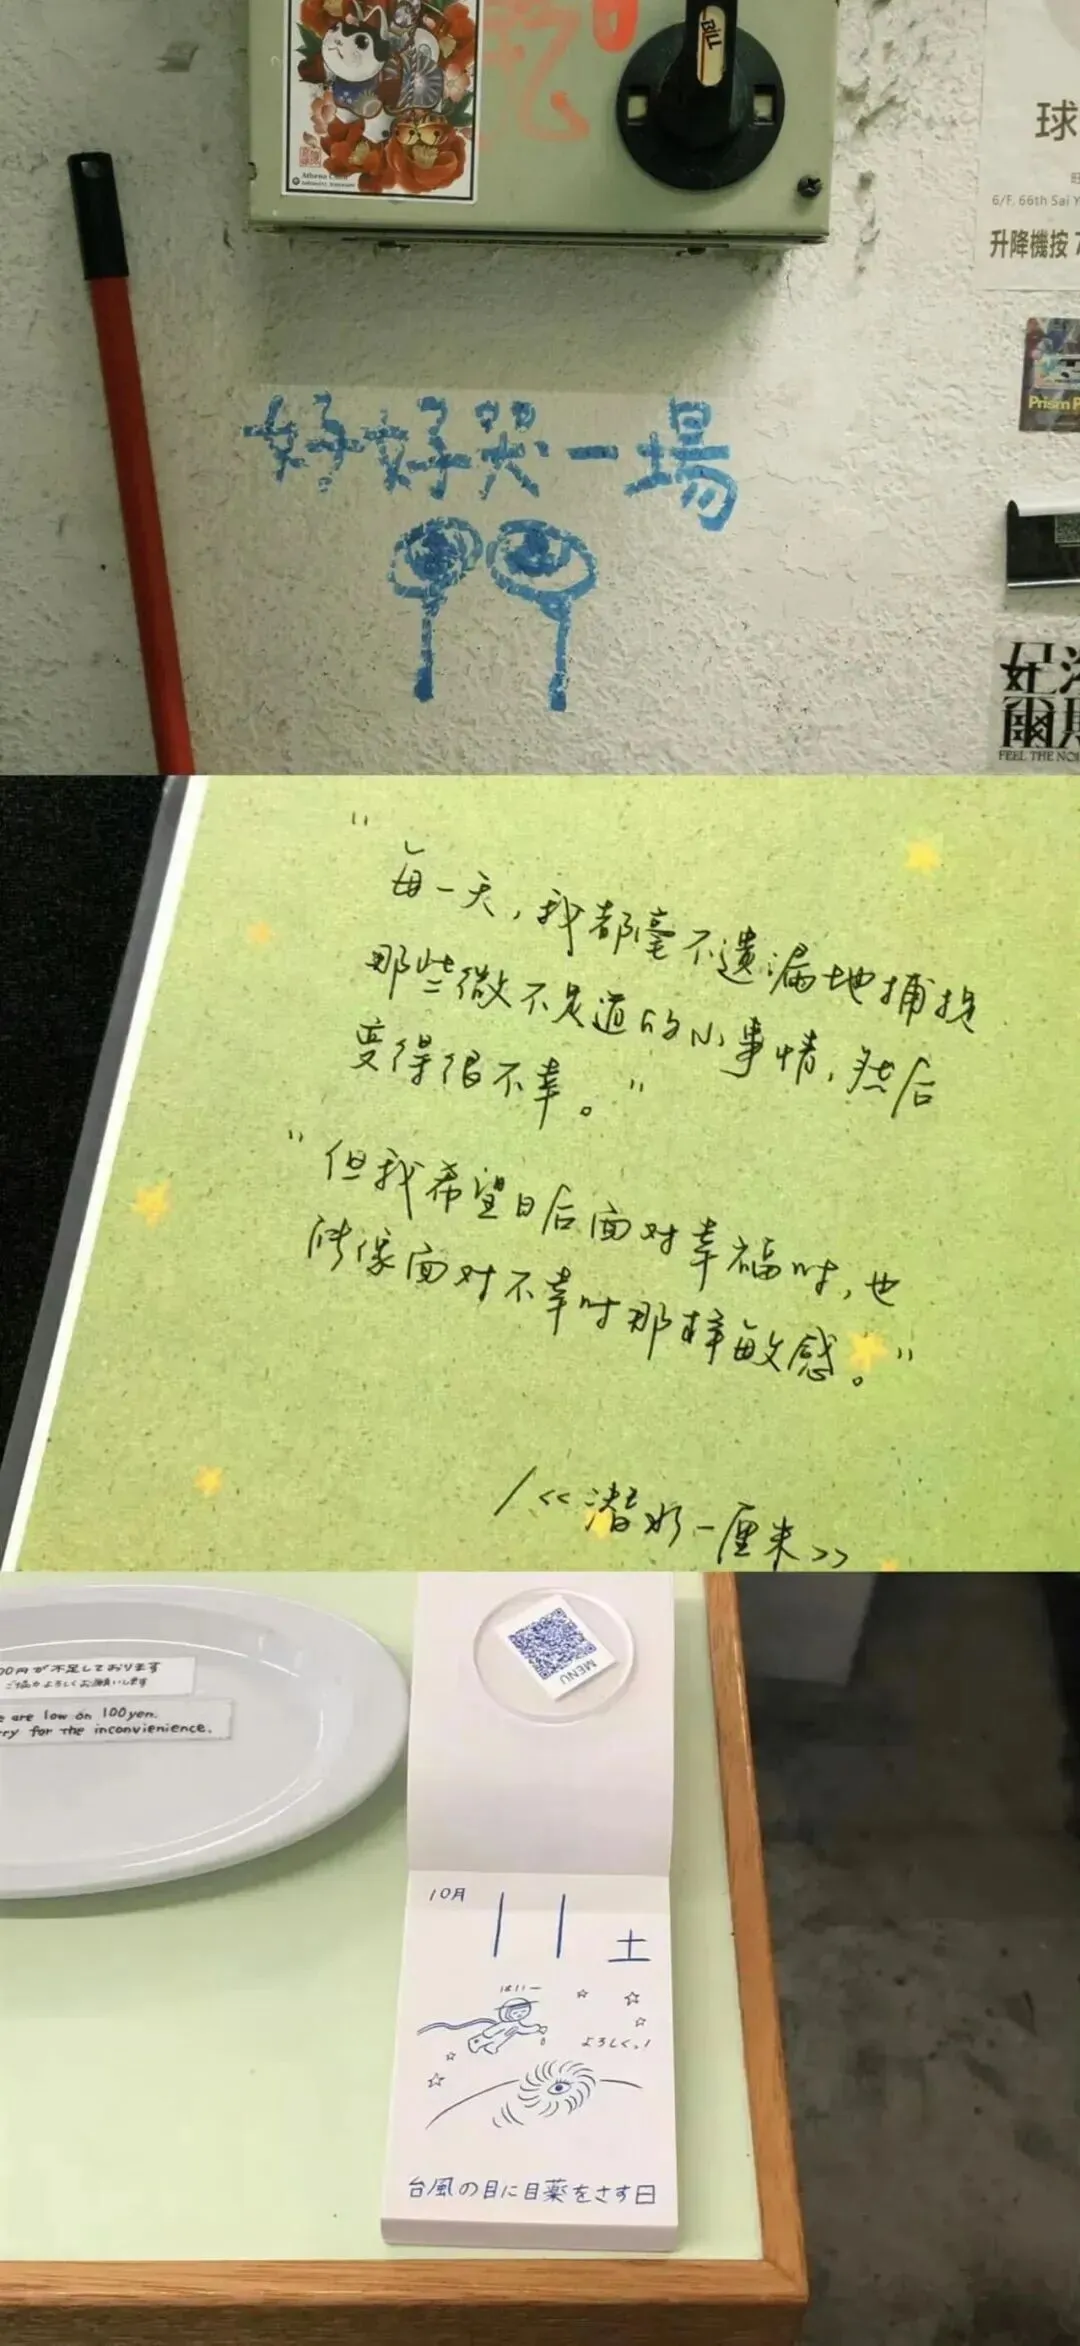 BILL
乾
Athena Chan
球
6/F, 66th Sai Y
升降機按 7
Prism P
好好哭一場
FEEL THE NO
“每一天，我都毫不遗漏地捕捉
那些微不足道的小事情，然后
变得很不幸。”
“但我希望日后面对幸福时，也
能像面对不幸时那样敏感。”
/《潜水一厘米》
00円が不足しております
ご協力よろしくお願いします
e are low on 100yen.
rry for the inconvienience.
MENU
10月
11
土
はいー
よろしくっ！
台風の目に目薬をさす日